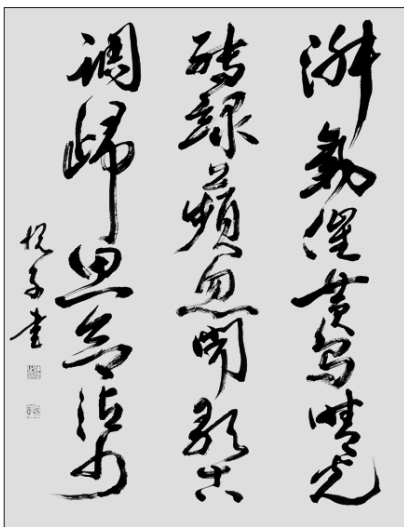 淑氣催黃鳥晴光
轉綠蘋忽聞歌古
調歸思欲沾巾
悦子書